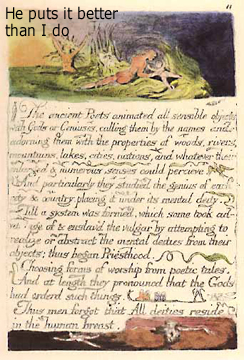 He puts it better
than I do
11
The ancient Poets animated all sensible objects
with Gods or Geniuses, calling them by the names and
adorning them with the properties of woods, rivers,
mountains, lakes, cities, nations, and whatever their
enlarged & numerous senses could perceive.
And particularly they studied the genius of each
city & country, placing it under its mental deity.
Till a system was formed, which some took ad-
-vantage of & enslav'd the vulgar by attempting to
realize or abstract the mental deities from their
objects; thus began Priesthood.
Choosing forms of worship from poetic tales.
And at length they pronounced that the Gods
had orderd such things.
Thus men forgot that All deities reside
in the human breast.